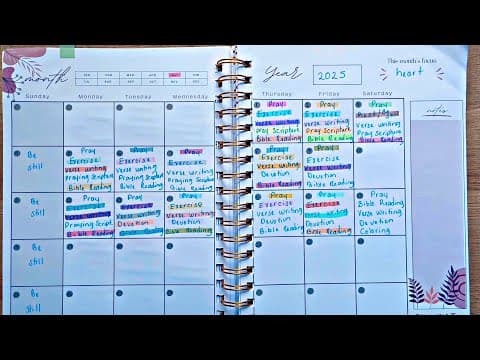 month
Year
2025
This month's focus
heart
Sunday
Monday
Tuesday
Wednesday
Thursday
Friday
Saturday
notes
Pray
Exercise
Verse Writing
Pray Scripture
Bible Reading
Pray
Exercise
Verse Writing
Pray Scripture
Bible Reading
Pray
Verse Writing
Pray Scripture
Bible Reading
Be
still
Pray
Exercise
Verse Writing
Praying Scripture
Bible Reading
Pray
Exercise
Verse Writing
Praying Scripture
Bible Reading
Pray
Exercise
Verse Writing
Praying Scripture
Bible Reading
Pray
Exercise
Verse Writing
Devotion
Bible Reading
Pray
Exercise
Verse Writing
Devotion
Bible Reading
Be
still
Pray
Exercise
Verse Writing
Praying Scripture
Bible Reading
Pray
Exercise
Verse Writing
Devotion
Bible Reading
Pray
Exercise
Verse Writing
Devotion
Bible Reading
Pray
Exercise
Verse Writing
Devotion
Bible Reading
Pray
Exercise
Verse Writing
Devotion
Bible Reading
Pray
Bible Reading
Verse Writing
Devotion
Coloring
Be
still
Be
Still